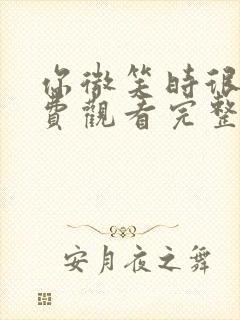 你微笑时很
費觀看完整
安月夜之舞